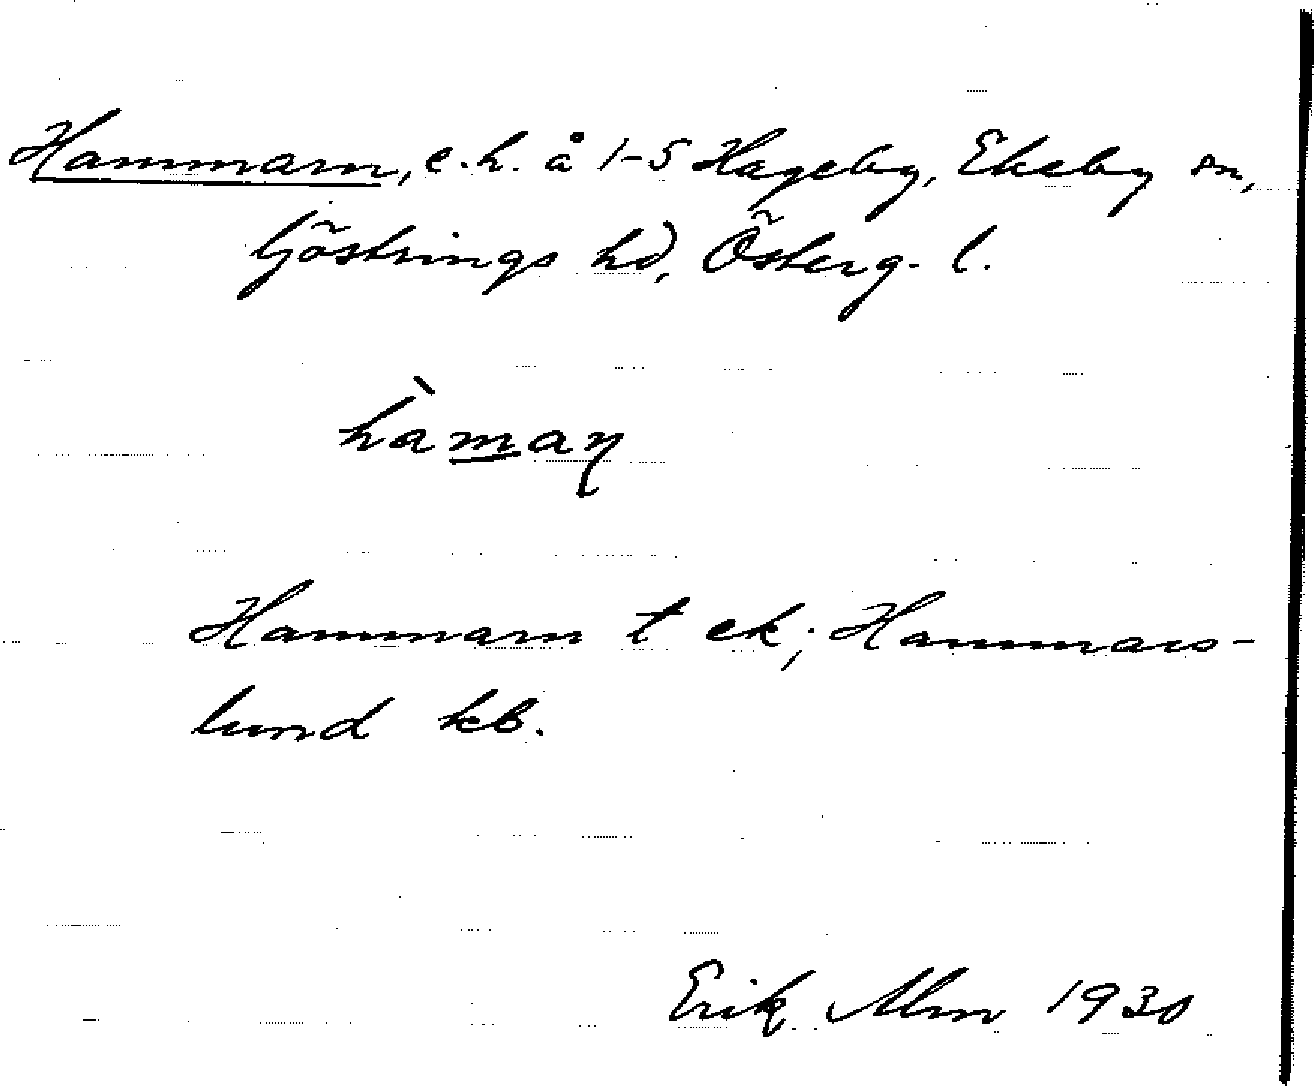 Hammarn, e.h. å 1-5 Hageby, Ekeby sn,
Göstrings hd, Österg. l.
hàmaɳ
Hammarn t ek; Hammars-
lund kb.
Erik Alm 1930